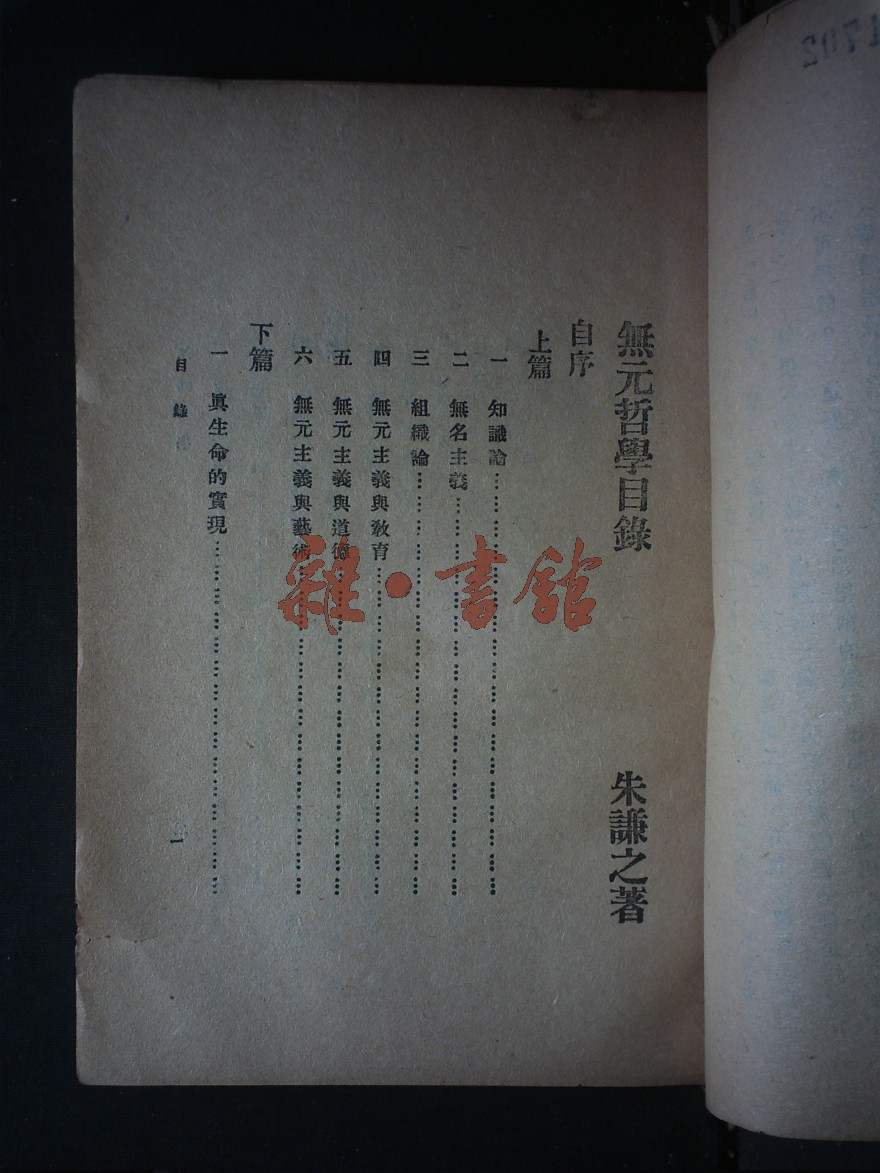 無元哲學目錄
朱謙之著
自序
上篇
一 知識論………………………………
二 無名主義………………………………
三 組織論………………………………
四 無元主義與教育………………………………
五 無元主義與道德………………………………
六 無元主義與藝術………………………………
下篇
一 眞生命的實現………………………………
目錄
一
雜·書館
1702